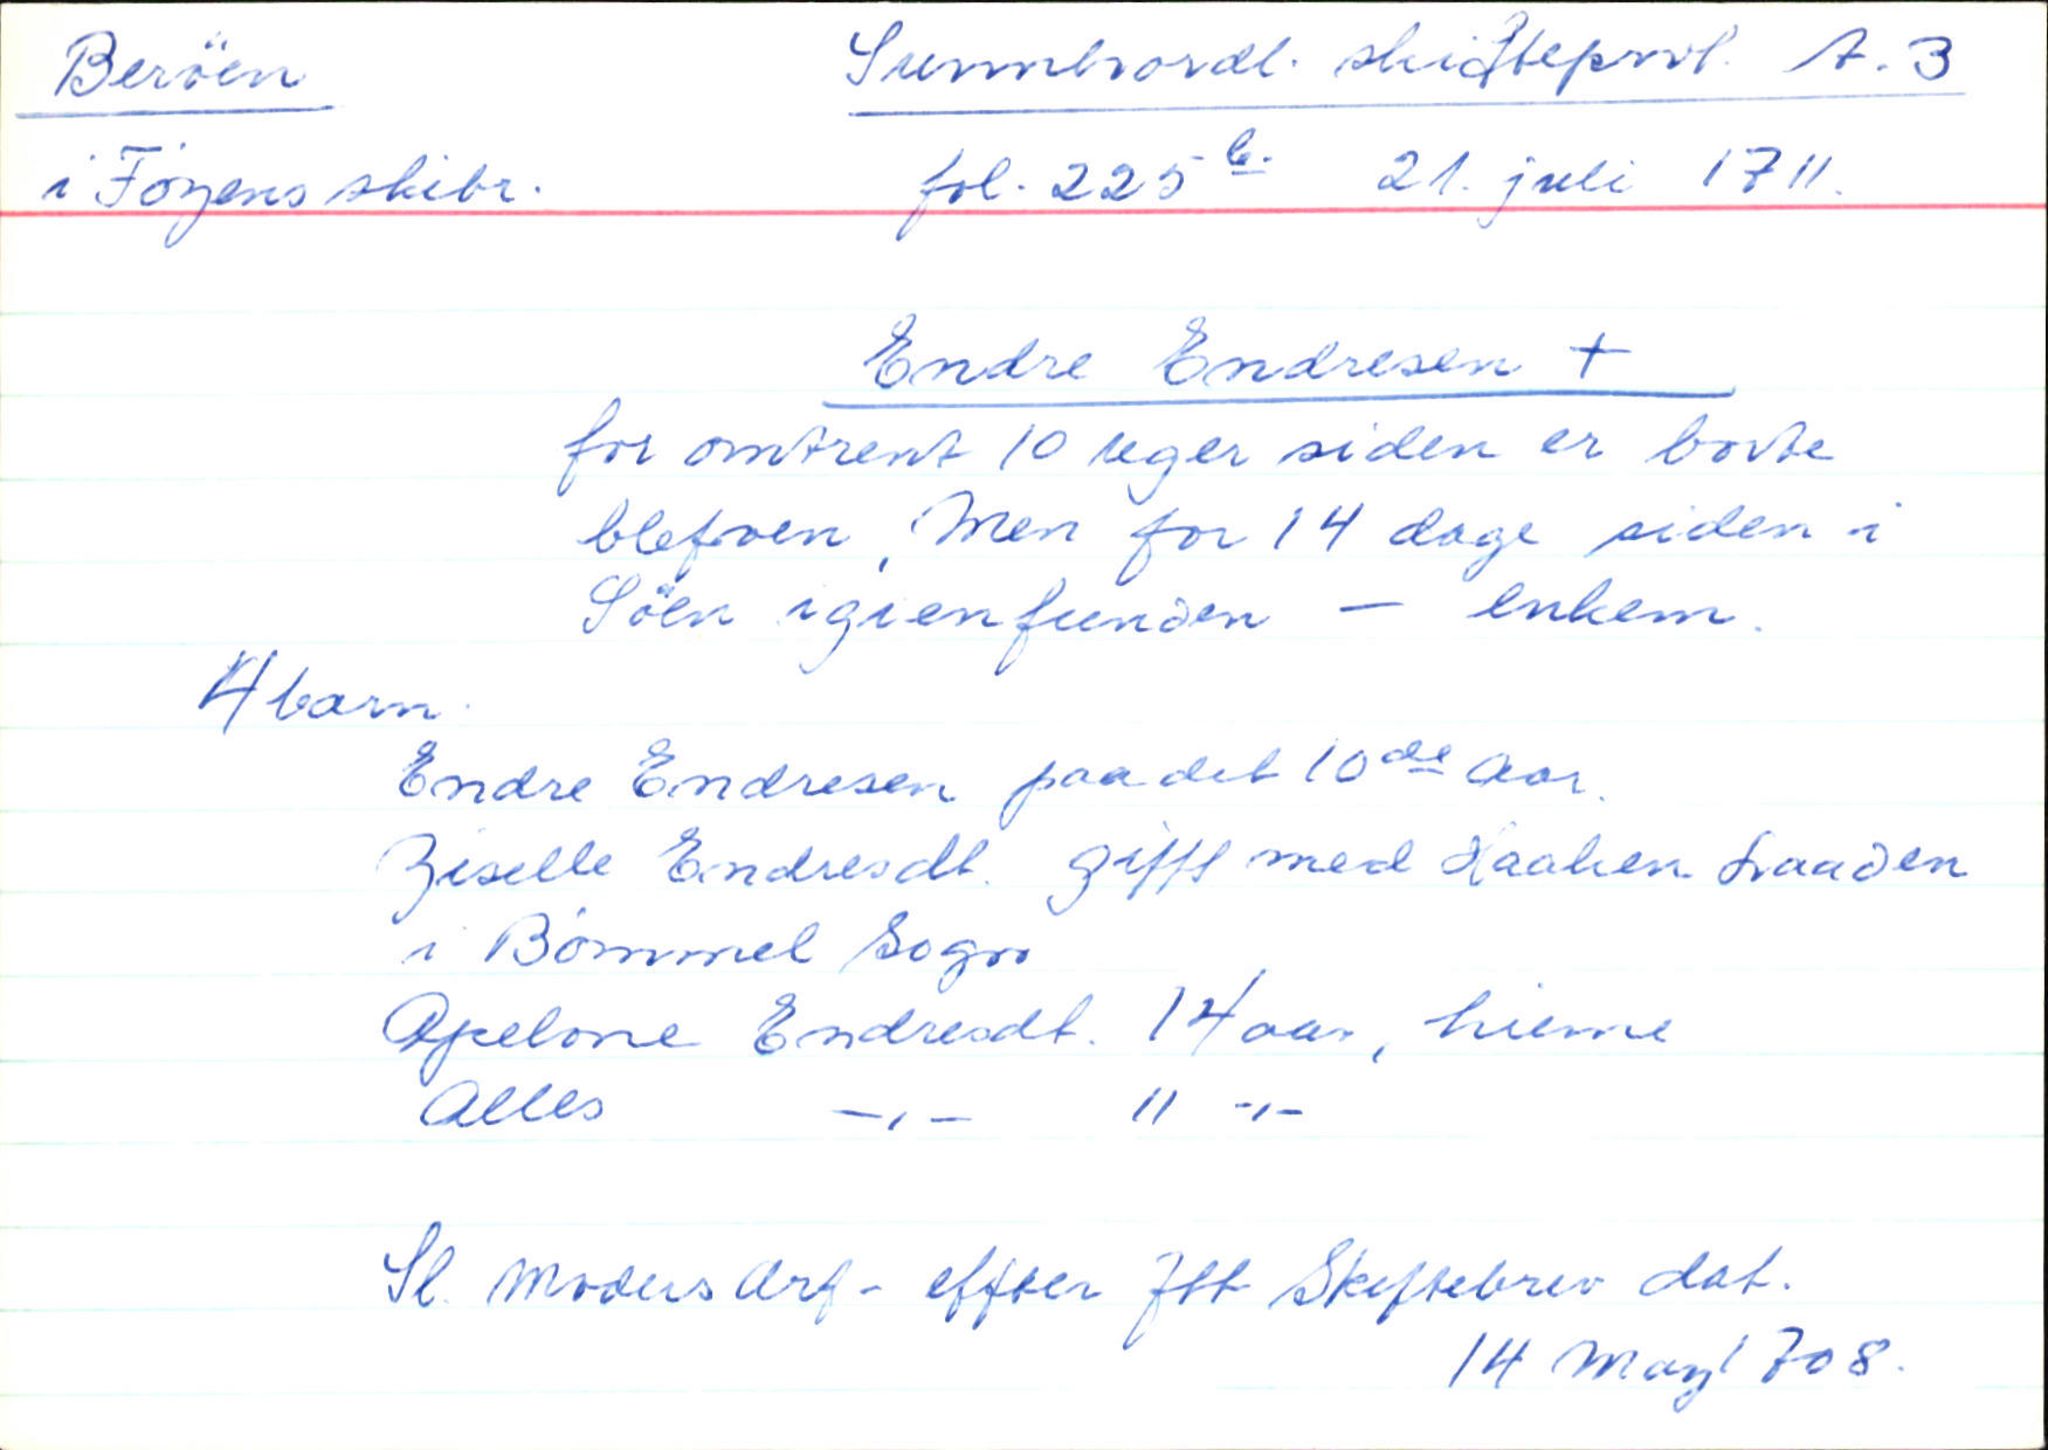 Beröen Sunnhordl. skifteprot. A. 3
i Föyens skibr. fol. 225 b. 21. juli 1711.
Endre Endresen +
for omtrent 10 uger siden er borte
blefven, Men for 14 dage siden i
Söen igienfunden — enkem.
4 barn.
Endre Endresen paa det 10de Aar.
Ziselle Endresdt. gifft med Haaken
i Bömmel Sogn
Apelone Endresdt. 14 aar, hieme
Alles -,- 11 -,-
Sl. Moders Arf - effter Skiftebrev dat.
14 May 1708.